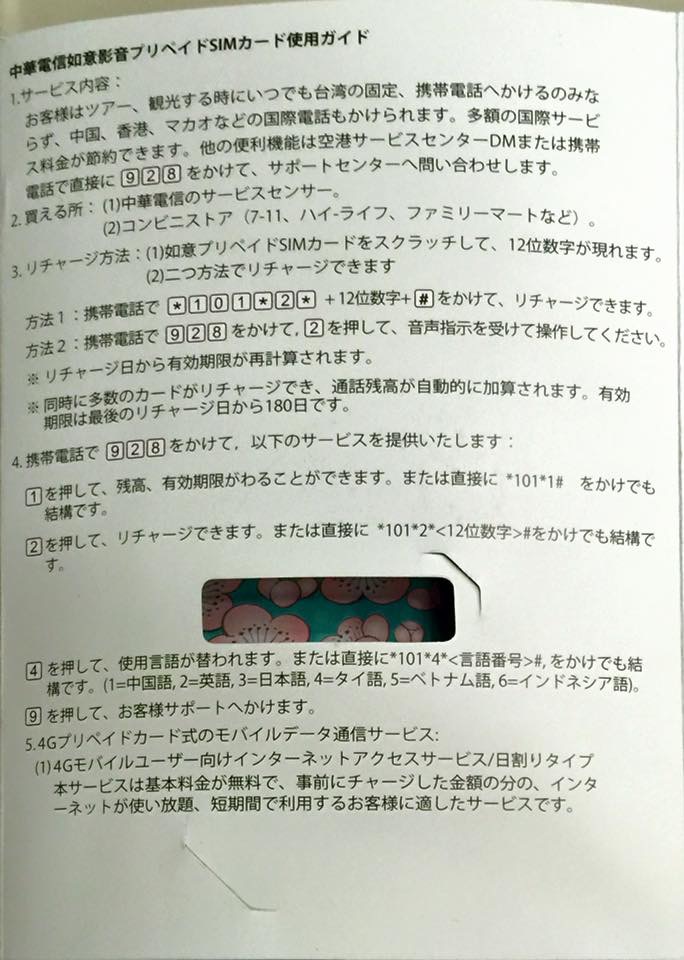 中華電信如意影音プリペイドSIMカード使用ガイド
1.サービス内容：
お客様はツアー、観光する時にいつでも台湾の固定、携帯電話へかけるのみな
らず、中国、香港、マカオなどの国際電話もかけられます。多額の国際サービ
ス料金が節約できます。他の便利機能は空港サービスセンターDMまたは携帯
電話で直接に 9 2 8 をかけて、サポートセンターへ問い合わせします。
2. 買える所：(1)中華電信のサービスセンサー。
(2)コンビニストア（7-11、ハイ-ライフ、ファミリーマートなど）。
3. リチャージ方法：(1)如意プリペイドSIMカードをスクラッチして、12位数字が現れます。
(2)二つ方法でリチャージできます
方法1：携帯電話で *101*2* +12位数字+ # をかけて、リチャージできます。
方法2：携帯電話で 9 2 8 をかけて, 2 を押して、音声指示を受けて操作してください。
※ リチャージ日から有効期限が再計算されます。
※ 同時に多数のカードがリチャージでき、通話残高が自動的に加算されます。有効
期限は最後のリチャージ日から180日です。
4. 携帯電話で 9 2 8 をかけて，以下のサービスを提供いたします：
1 を押して、残高、有効期限がわることができます。または直接に *101*1# をかけても
結構です。
2 を押して、リチャージできます。または直接に *101*2*<12位数字>#をかけでも結構で
す。
4 を押して、使用言語が替われます。または直接に*101*4*<言語番号>#, をかけでも結
構です。(1=中国語, 2=英語, 3=日本語, 4=タイ語, 5=ベトナム語, 6=インドネシア語)。
9 を押して、お客様サポートへかけます。
5.4Gプリペイドカード式のモバイルデータ通信サービス:
(1)4Gモバイルユーザー向けインターネットアクセスサービス/日割りタイプ
本サービスは基本料金が無料で、事前にチャージした金額の分の、インタ
ーネットが使い放題、短期間で利用するお客様に適したサービスです。